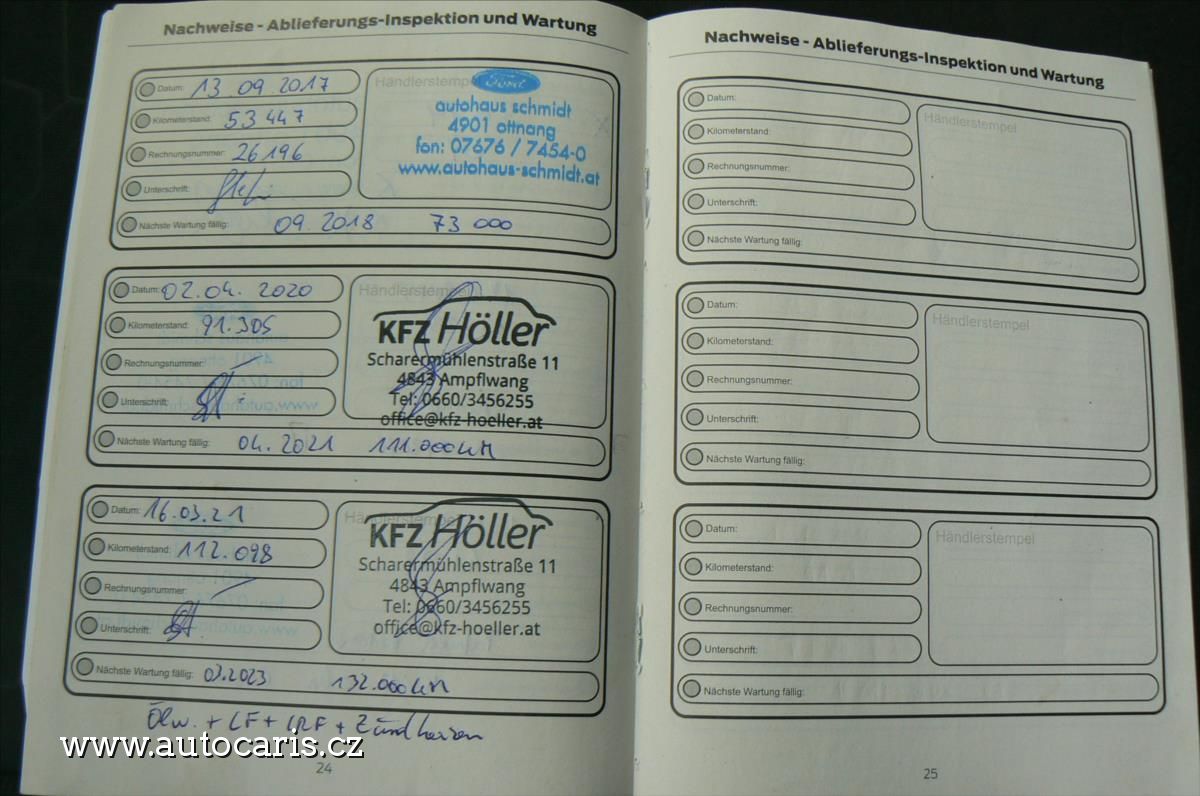 Nachweise - Ablieferungs-Inspektion und Wartung
Datum: 13 09. 2017
Kilometerstand: 53 447
Rechnungsnummer: 26196
Unterschrift:
Nächste Wartung fällig: 09. 2018 73 000
Händlerstempel
Ford
autohaus schmidt
4901 ottnang
fon: 07676 / 7454-0
www.autohaus-schmidt.at
Datum: 02.04. 2020
Kilometerstand: 91.305
Rechnungsnummer:
Unterschrift:
Nächste Wartung fällig: 04. 2021 111.000 KM
Händlerstempel
KFZ Höller
Scharermühlenstraße 11
4843 Ampflwang
Tel: 0660/3456255
office@kfz-hoeller.at
Datum: 16.03.21
Kilometerstand: 112.098
Rechnungsnummer:
Unterschrift:
Nächste Wartung fällig: 03.2023 132.000 KM
Händlerstempel
KFZ Höller
Scharermühlenstraße 11
4843 Ampflwang
Tel: 0660/3456255
office@kfz-hoeller.at
Ölw. + LF + IRF + Zündkerzen
www.autocaris.cz
24
Nachweise - Ablieferungs-Inspektion und Wartung
Datum:
Kilometerstand:
Rechnungsnummer:
Unterschrift:
Nächste Wartung fällig:
Händlerstempel
Datum:
Kilometerstand:
Rechnungsnummer:
Unterschrift:
Nächste Wartung fällig:
Händlerstempel
Datum:
Kilometerstand:
Rechnungsnummer:
Unterschrift:
Nächste Wartung fällig:
Händlerstempel
25